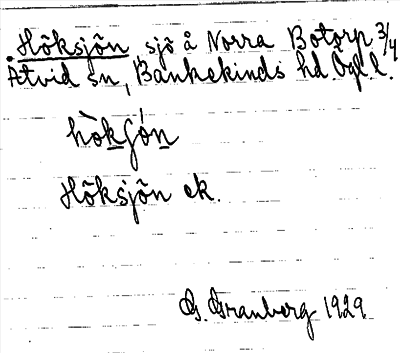 Höksjön sjö å Norra Botorp 3/4
Åtvid sn, Bankekinds hd Ögl l.
hòkʃón
Höksjön ek.
G. Granberg 1929